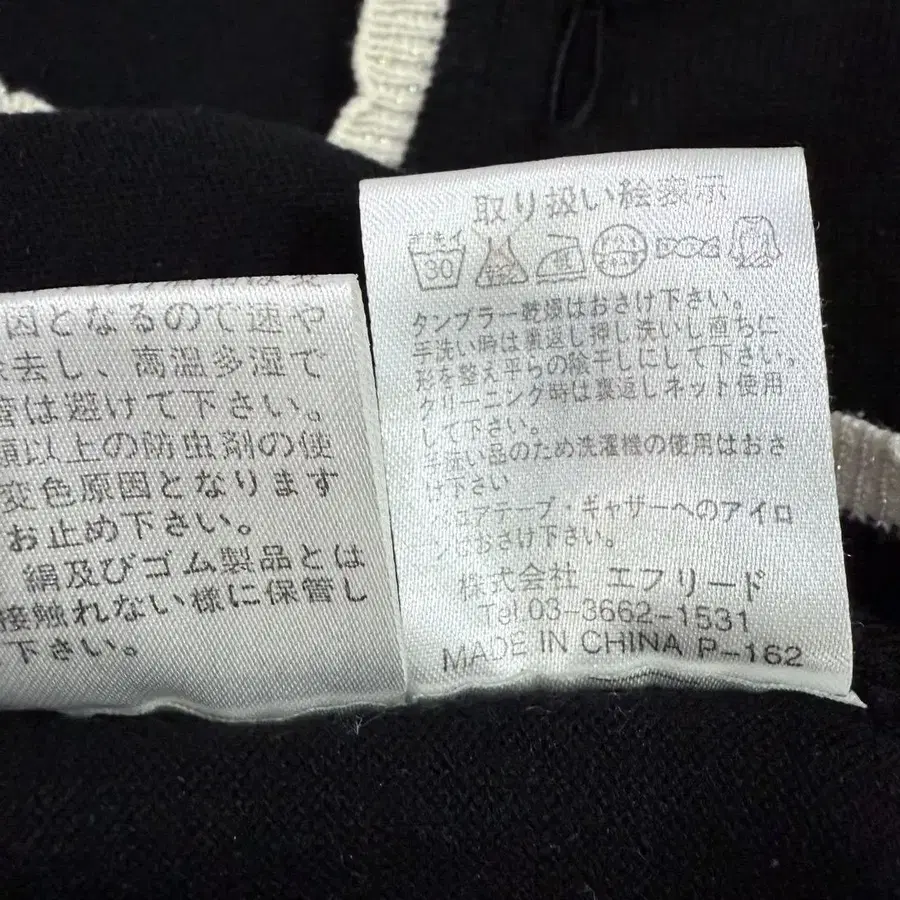 因となるので速や
去し、高温多湿で
管は避けて下さい。
類以上の防虫剤の使
変色原因となります
お止め下さい。
絹及びゴム製品とは
接触れない様に保管し
下さい。
取り扱い絵表示
手洗イ
30
タンブラー乾燥はおさけ下さい。
手洗い時は裏返し押し洗いし直ちに
形を整え平らの陰干しにして下さい。
クリーニング時は裏返しネット使用
して下さい。
手洗い品のため洗濯機の使用はおさ
け下さい
・ギャザーへのアイロ
ンはおさけ下さい。
株式会社 エフリード
Tel.03-3662-1531
MADE IN CHINA P-162